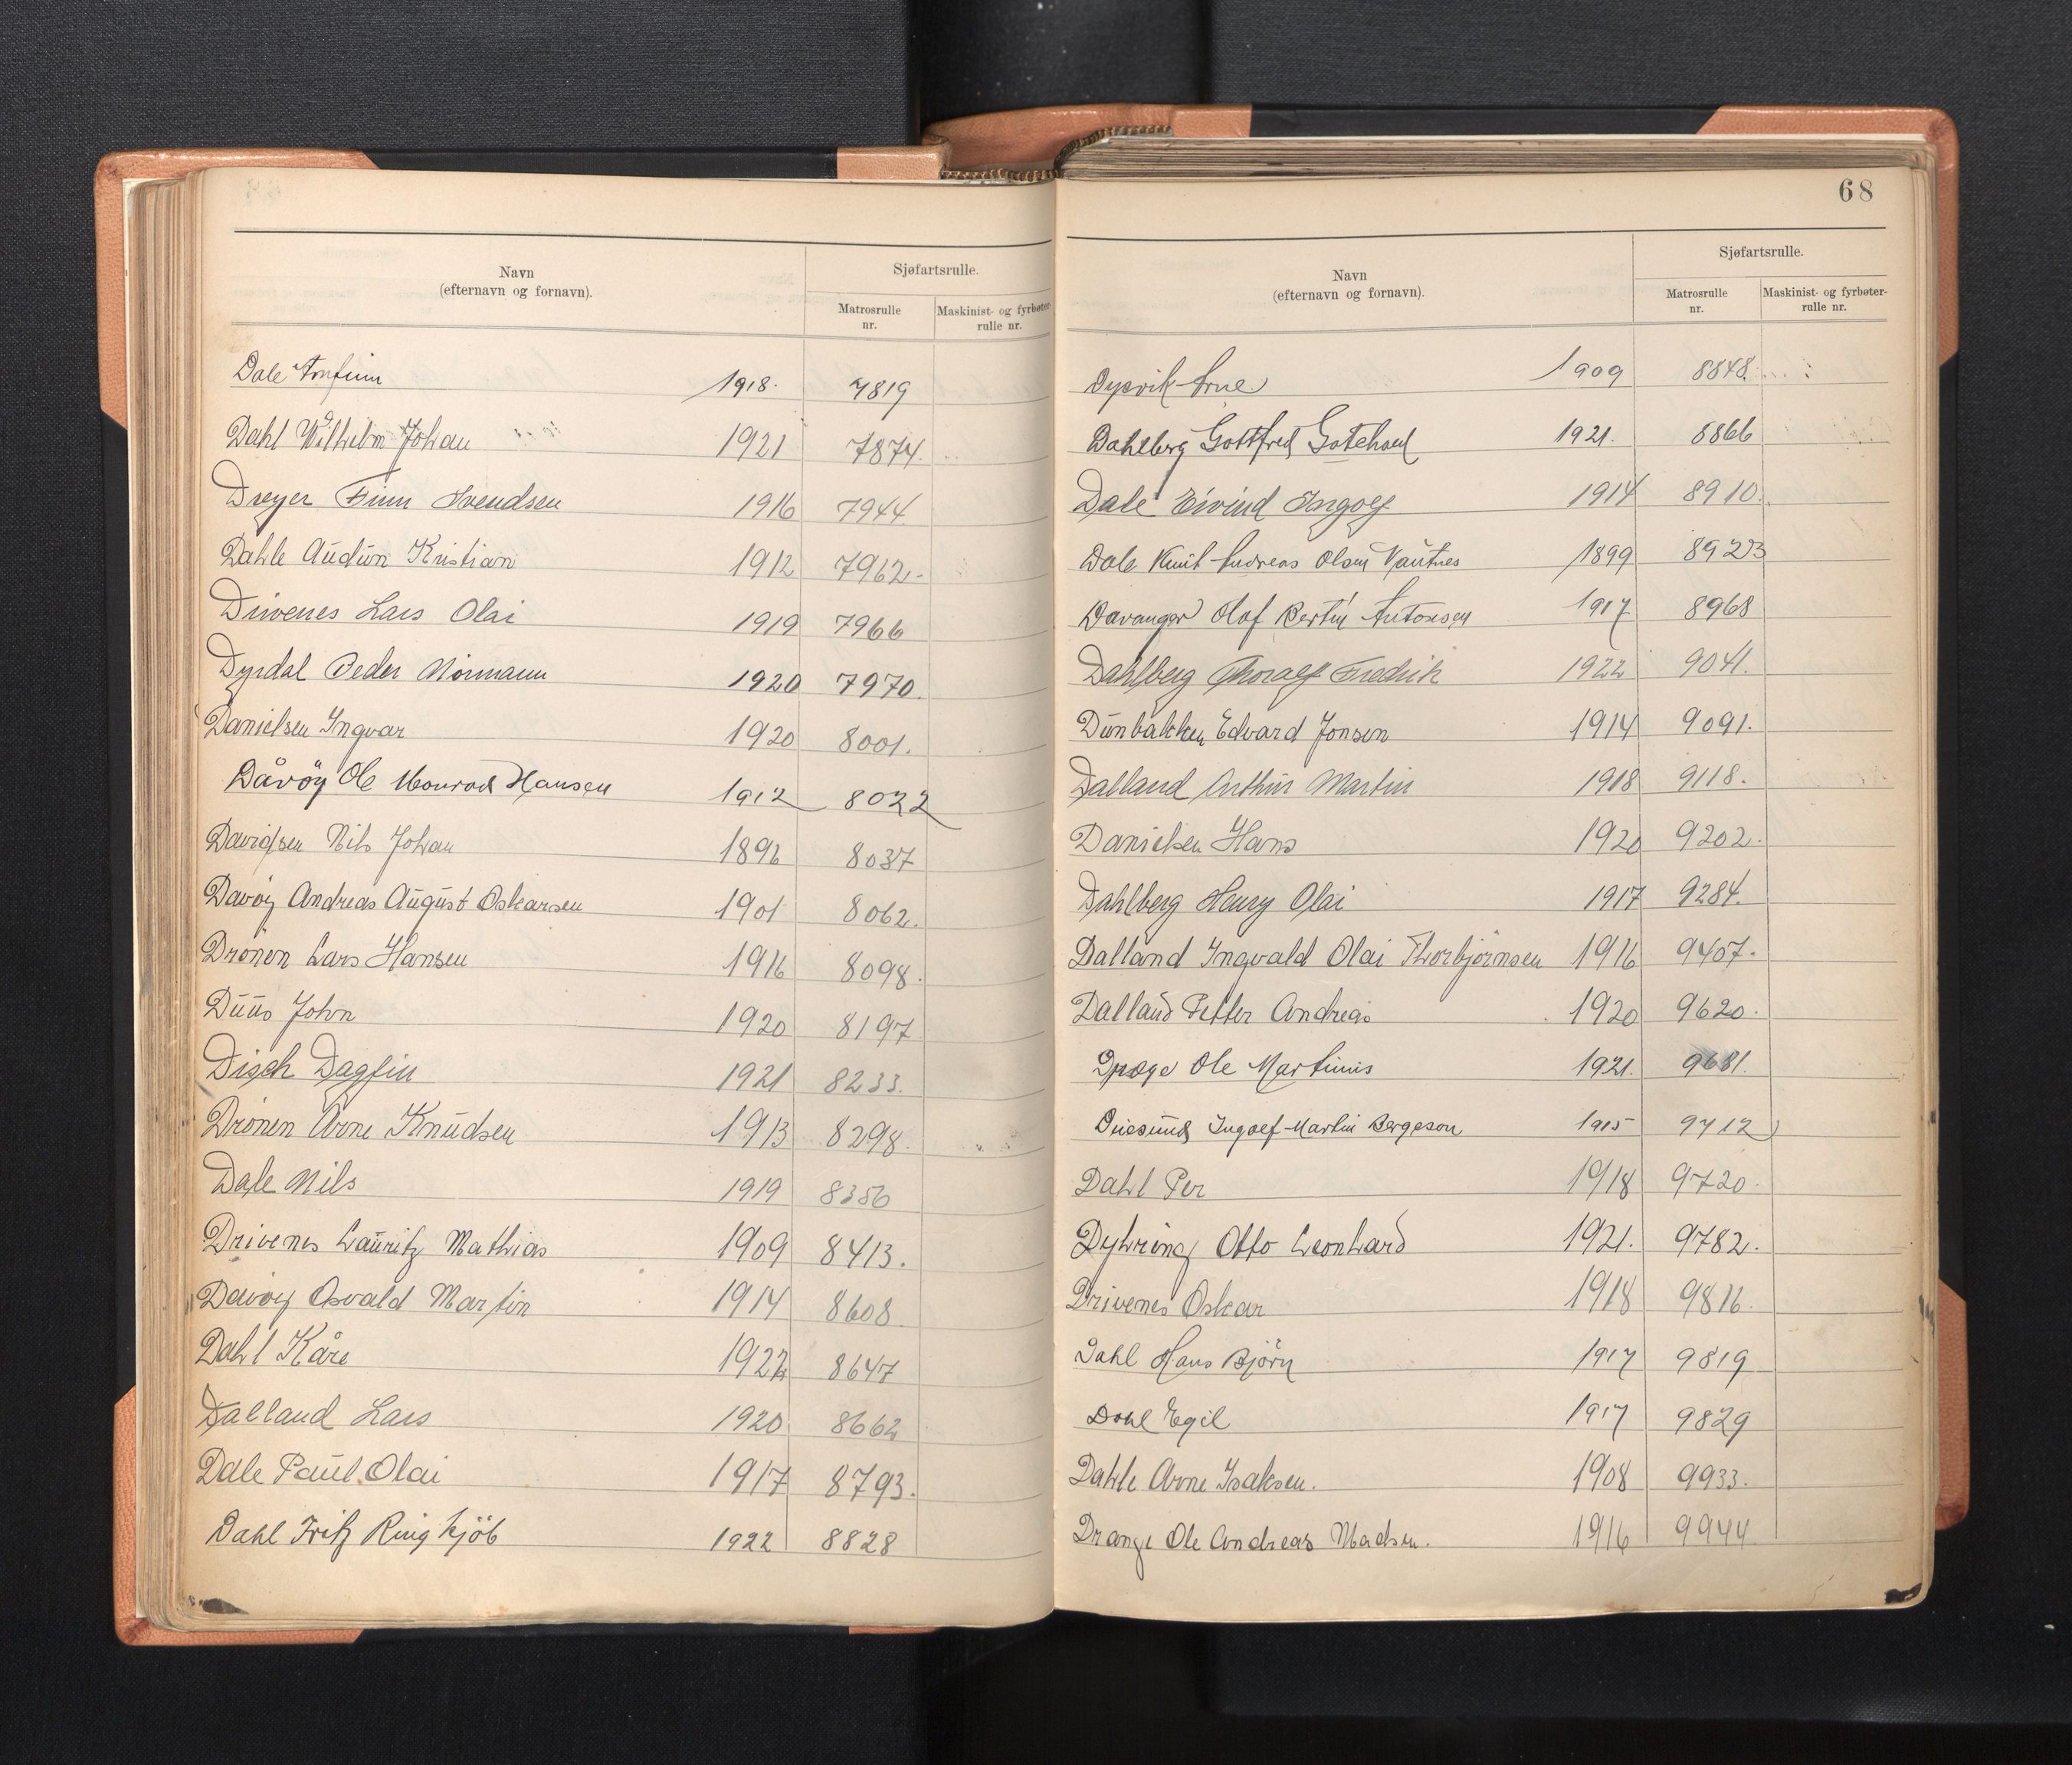 Navn
(efternavn og fornavn).
Sjøfartsrulle.
Matrosrulle
nr.
Maskinist- og fyrbøter-
rulle nr.
Dale Arnfinn 1918. 7819
Dahl Wilhelm Johan 1921 7874.
Dreyer Finn Svendsen 1916 7944
Dahle Audun Kristian 1912 7962.
Drivenes Lars Olai 1919 7966
Dyrdal Peder Normann 1920 7970.
Danielsen Ingvar 1920 8001.
Dåvöy Ole Monrad Hansen 1912 8022
Davidsen Nils Johan 1896 8037
Davöy Andreas August Oskarsen 1901 8062.
Drönen Lars Hansen 1916 8098.
Duus John 1920 8197
Disch Dagfin 1921 8233.
Drönen Arne Knudsen 1913 8298.
Dale Nils 1919 8356
Drivenes Lauritz Mathias 1909 8413.
Davöy Osvald Martin 1914 8608.
Dahl Kåre 1922 8647
Dalland Lars 1920 8662
Dale Paul Olai 1917 8793.
Dahl Fritz Ringkjöb 1922 8828
68
Navn
(efternavn og fornavn).
Sjøfartsrulle.
Matrosrulle
nr.
Maskinist- og fyrbøter-
rulle nr.
Dysvik Arne 1909 8848
Dahlberg Gottfred 1921. 8866
Dale Eivind Ingolf 1914 8910.
Dale Knut Andreas Olsen 1899 8923
Davanger Olaf Bertin Antonsen 1917 8968
Dahlberg Thoralf Fredrik 1922 9041.
Dunbakken Edvard Jonsen 1914 9091.
Dalland Arthur Martin 1918 9118.
Danielsen Hans 1920 9202.
Dahlberg Henry Olai 1917 9284.
Dalland Ingvald Olai Thorbjörnsen 1916 9407.
Dalland Petter Andreas 1920 9620.
Drage Ole Martinus 1921. 9681.
Ingolf Martin Bergeson 1915 9712
Dahl Per 1918 9720.
Dyhring Otto Leonhard 1921. 9782.
Drivenes Oskar 1918 9816.
Dahl Hans Björn 1917 9819
Dahl Egil 1917 9829
Dahle Arne Isaksen. 1908 9933.
Drange Ole Andreas Madsen. 1916 9944